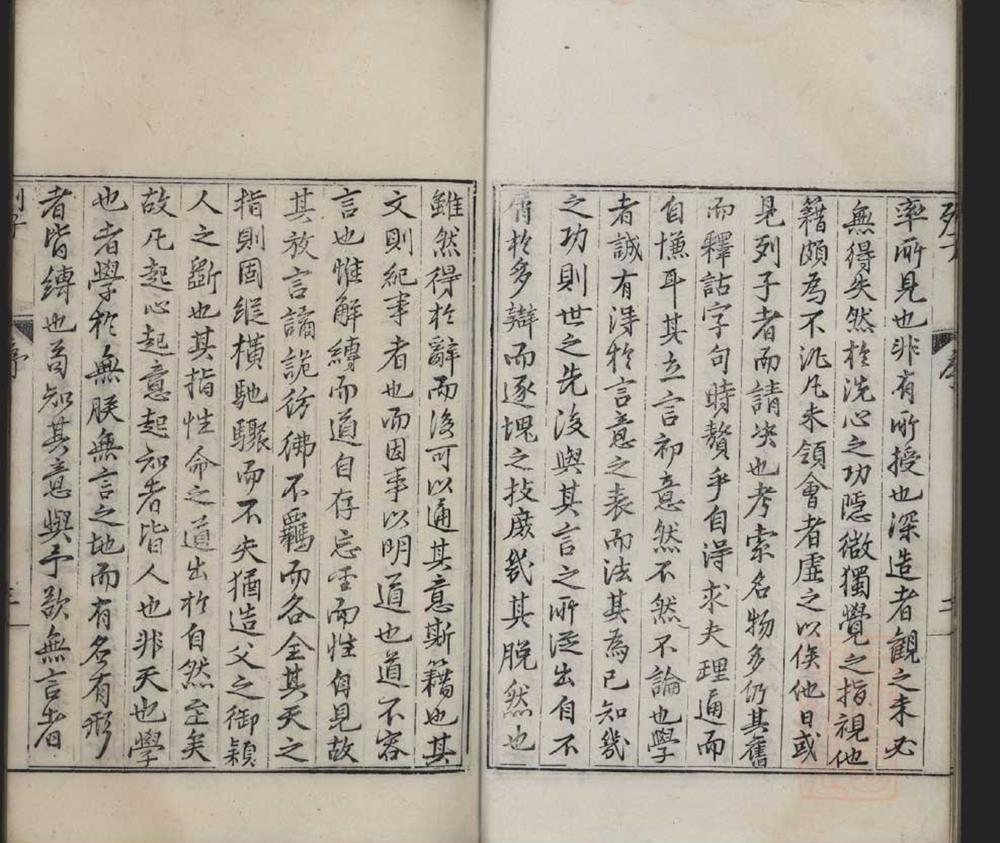 率所見也非有所授也深造者觀之未必
無得失然於洗心之功隱微獨覺之指視他
籍頗為不汎凡未領會者虛之以俟他日或
見列子者而請決也考索名物多仍其舊
而釋詁字句時贅乎自得求夫理通而
自慊耳其立言初意然不然不論也學
者誠有得於言意之表而法其為已知幾
之功則世之先後與其言之所從出自不
屑於多辯而逐塊之技庶幾其脫然也
雖然得於辭而後可以通其意斯籍也其
文則紀事者也而因事以明道也道不容
言也惟解縛而道自存忘言而性自見故
其放言譎詭彷彿不羈而各全其天之
指則固縱橫馳驟而不失猶造父之御穎
人之斲也其指性命之道出於自然至矣
故凡起心起意起知者皆人也非天也學
也者學於無朕無言之地而有名有形
者皆縛也苟知其意與予欲無言者
序